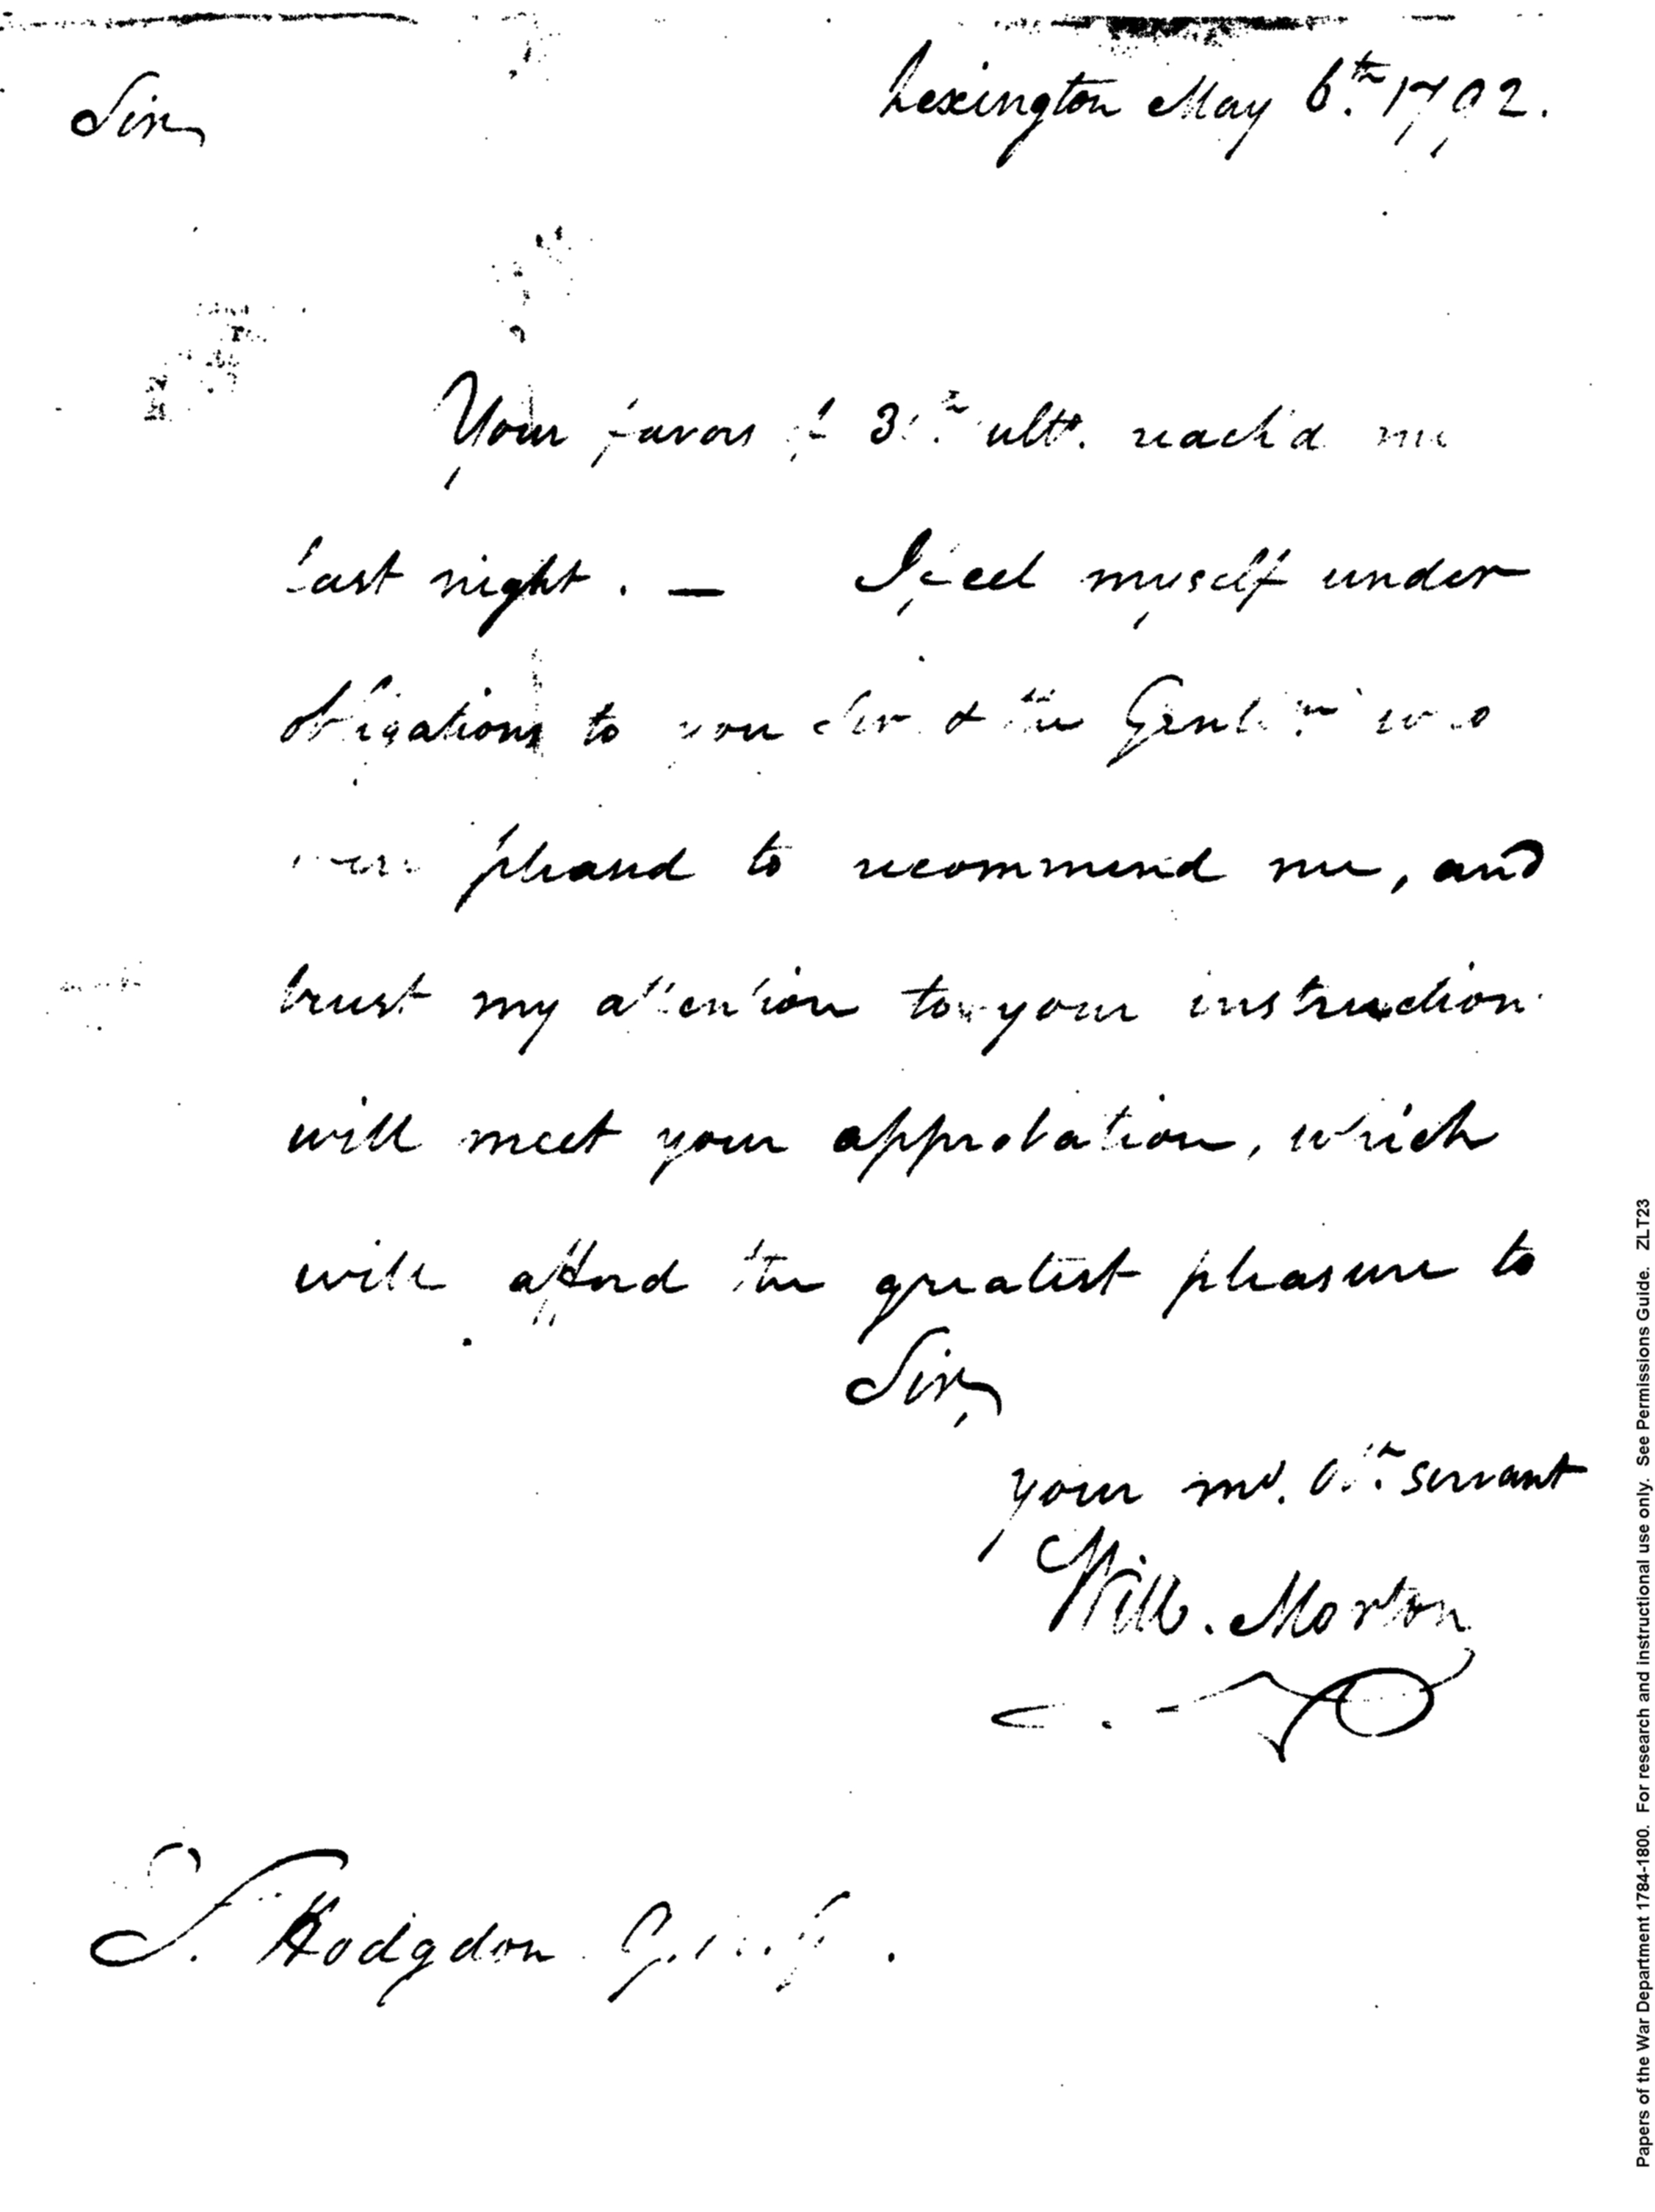 Lexington May 6.th 1792.
Sir,
Your favors of ult.o reach'd me
last night. — I feel myself under
obligations to you Sir & the Gentl.m who
were pleased to recommend me, and
trust my attention to your instruction
will meet your approbation, which
will afford the greatest pleasure to
Sir,
your mo. servant
Will. Morton
S. Hodgdon
Papers of the War Department 1784-1800. For research and instructional use only. See Permissions Guide. ZLT23